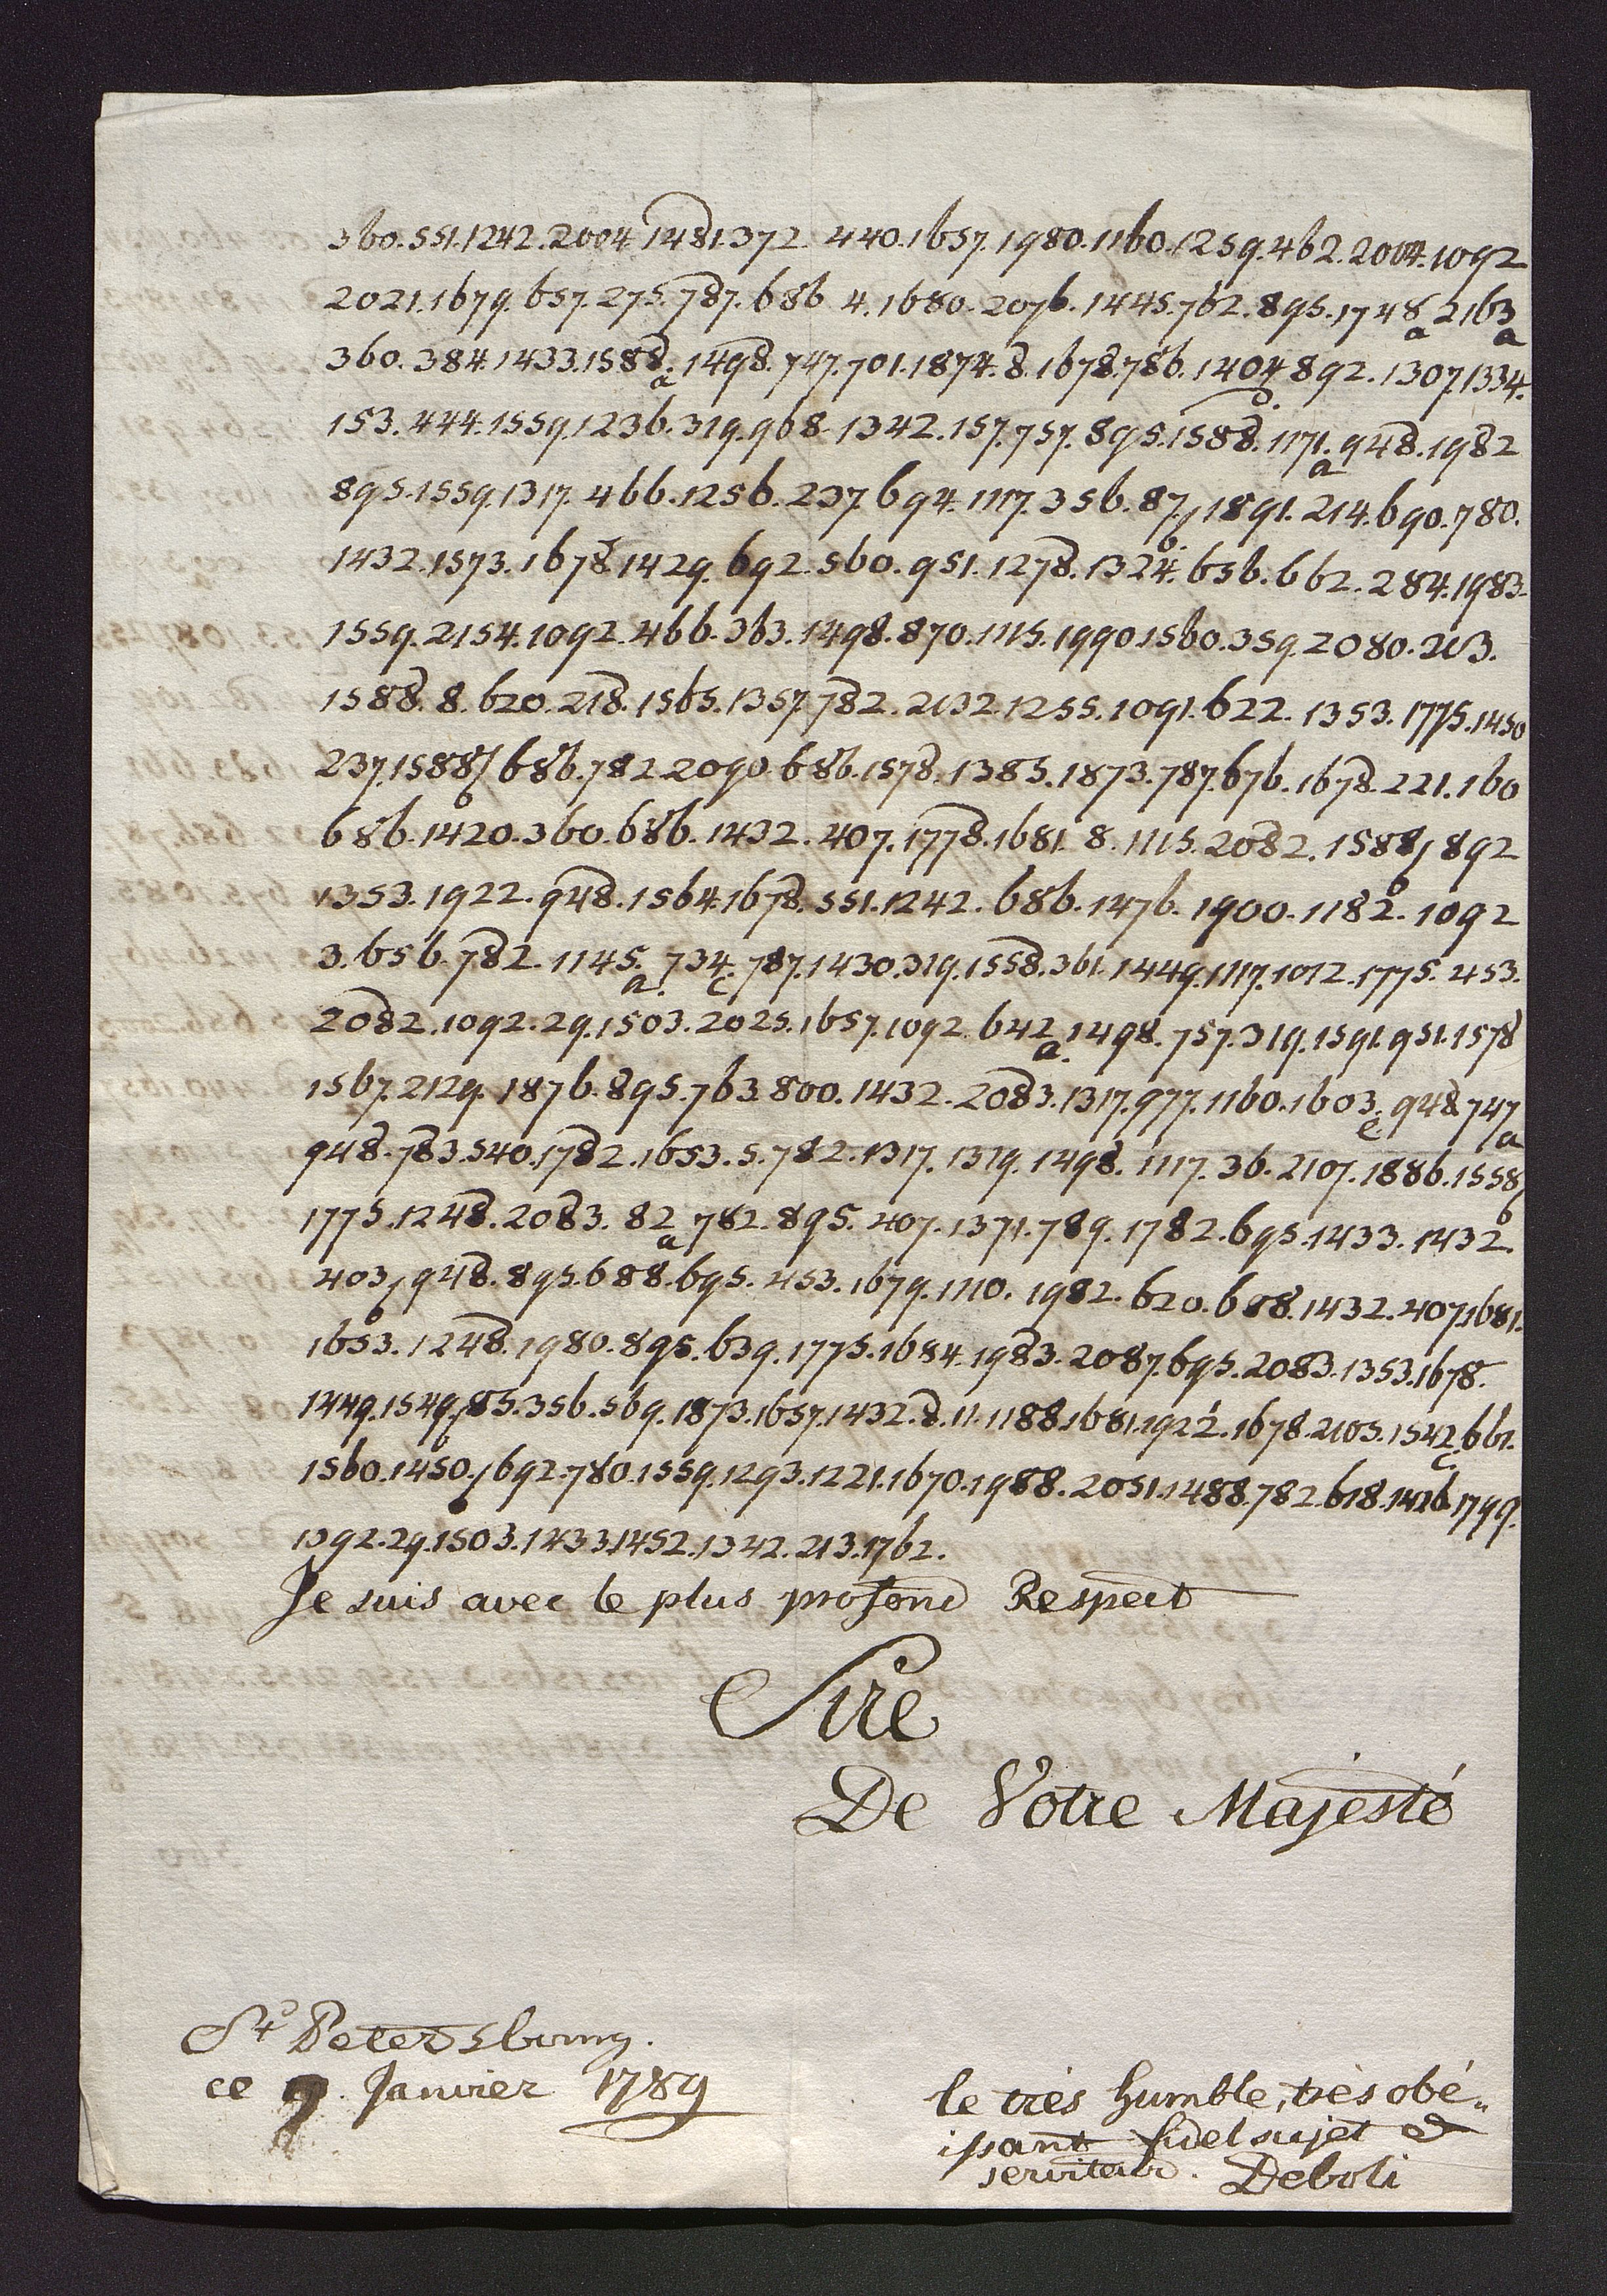 360.551.1242.2004.1481.372 440.1657.1980.1160.1259.462.2004.1092
2021.1679.657.275.787.686 4.1680.2076.1445.762.895.1748a 2163a
360.384.1433.1588a.1498.747.701.1874.8.1678.786.1404 892.1307.1334.
153.444.1559.1236.319.968.1342.157.757.895.1588.1171a.948.1982
895.1559.1317.466.1256.237.694.1117.356.87b 1891.214.690.780.
1432.1573.1678.1429.692.560.951.1278.1324.656.662.284.1983.
1559.2154.1092.466.363.1498.870.1115.1990.1560.359.2080.
1588.8.620.218.1565.1357.782.2132.1255.1091.622.1353.1775.1450
237.1588b 686.782.2090.686.1578.1385.1873.787.676.1678.221.160
686.1420.360.686.1432.407.1778.1681.8.1115.2082.1588b 892
1353.1922.948.1564.1678.551.1242.686.1476.1900.1182.1092
3.656.782.1145a.734c.787.1430.319.1558.361.1449.1117.1012.1775.453.
2082.1092.29.1503.2025.1657.1092.642a.1498.757.319.1591.951.1578
1567.2129.1876.895.763.800.1432.2083.1317.977.1160.1603e.948 747a
948.783.540.1782.1653.5.782.1317.1319.1498.1117.36.2107.1886.1558b
1775.1248.2083.82a 782.895.407.1371.789.1782.695.1433.1432.
403b 948.895.688.695.453.1679.1110.1982.620.688.1432.407.1681.
1653.1248.1980.895.639.1775.1684.1983.2087.695.2083.1353.1678.
1449.1549b 85.356.569.1873.1657.1432.8.11.1188.1681.1922.1678.2105.1542c 661.
1560.1450b 692.780.1559.1293.1221.1670.1988.2051.1488.782.618.1426.1799.
1392.29.1503.1433.1452.1342.213.1762.
Je suis avec le plus profond Respect
Sire
De Votre Majesté
St Petersbourg.
ce 9. Janvier 1789
le très humble, très obé-
issant fidel sujet et
serviteur. Deboli